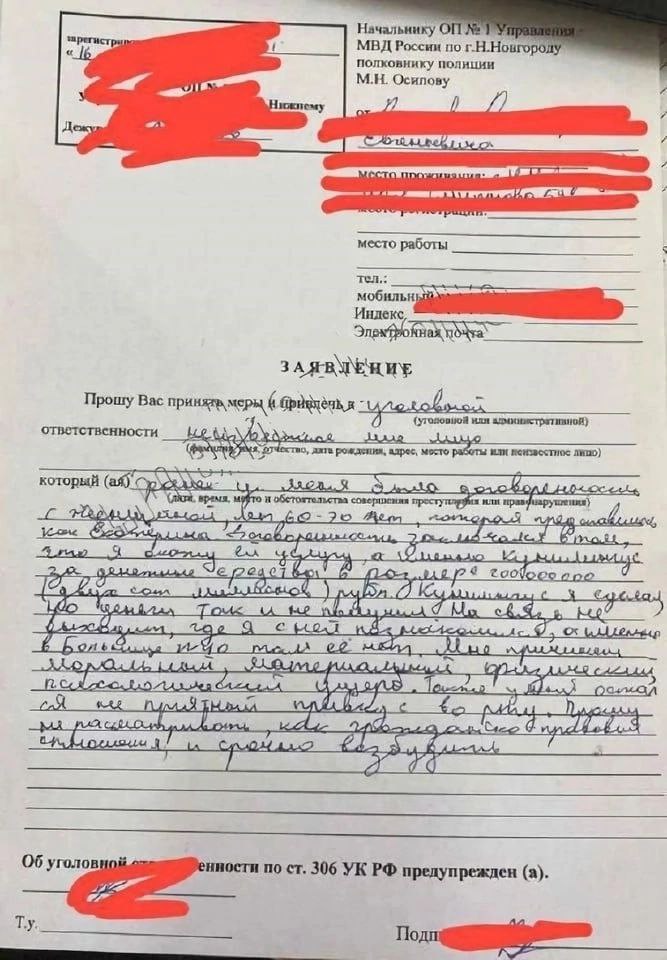 зарегистрир
« 16
ОП №
Нижнему
Дежу
Начальнику ОП № 1 Управления
МВД России по г.Н.Новгороду
полковнику полиции
М.Н. Осипову
от
Евгеньевича
место проживания:
место регистрации:
место работы
тел.:
мобильный
Индекс
Электронная почта
ЗАЯВЛЕНИЕ
Прошу Вас принять меры и привлечь к уголовной
(уголовной или административной)
ответственности неизвестное мне лицо
(фамилия, имя, отчество, дата рождения, адрес, место работы или неизвестное лицо)
который (ая) у меня была договоренность
(дата, время, место и обстоятельства совершения преступления или правонарушения)
с женщиной, лет 60-70 лет, которая представилась
как Екатерина Договоренность заключался в том,
что я окажу ей услугу, а именно кунилингус
за денежные средства в размере 200000000
(двух сот миллионов) рубл. Кунилингус я сделал
но деньги так и не получил На связь не
выходит, где я с ней познакомился, а именно
в Больнице №40 там её нет. Мне причинен
моральный, материальный, физический
психологический ущерб. Также у меня остал
ся не приятный привкус во рту. Прошу
не рассматривать, как гражданско правовые
отношения, и срочно возбудить
Об уголовной ответственности по ст. 306 УК РФ предупрежден (а).
Т.у.
Подп